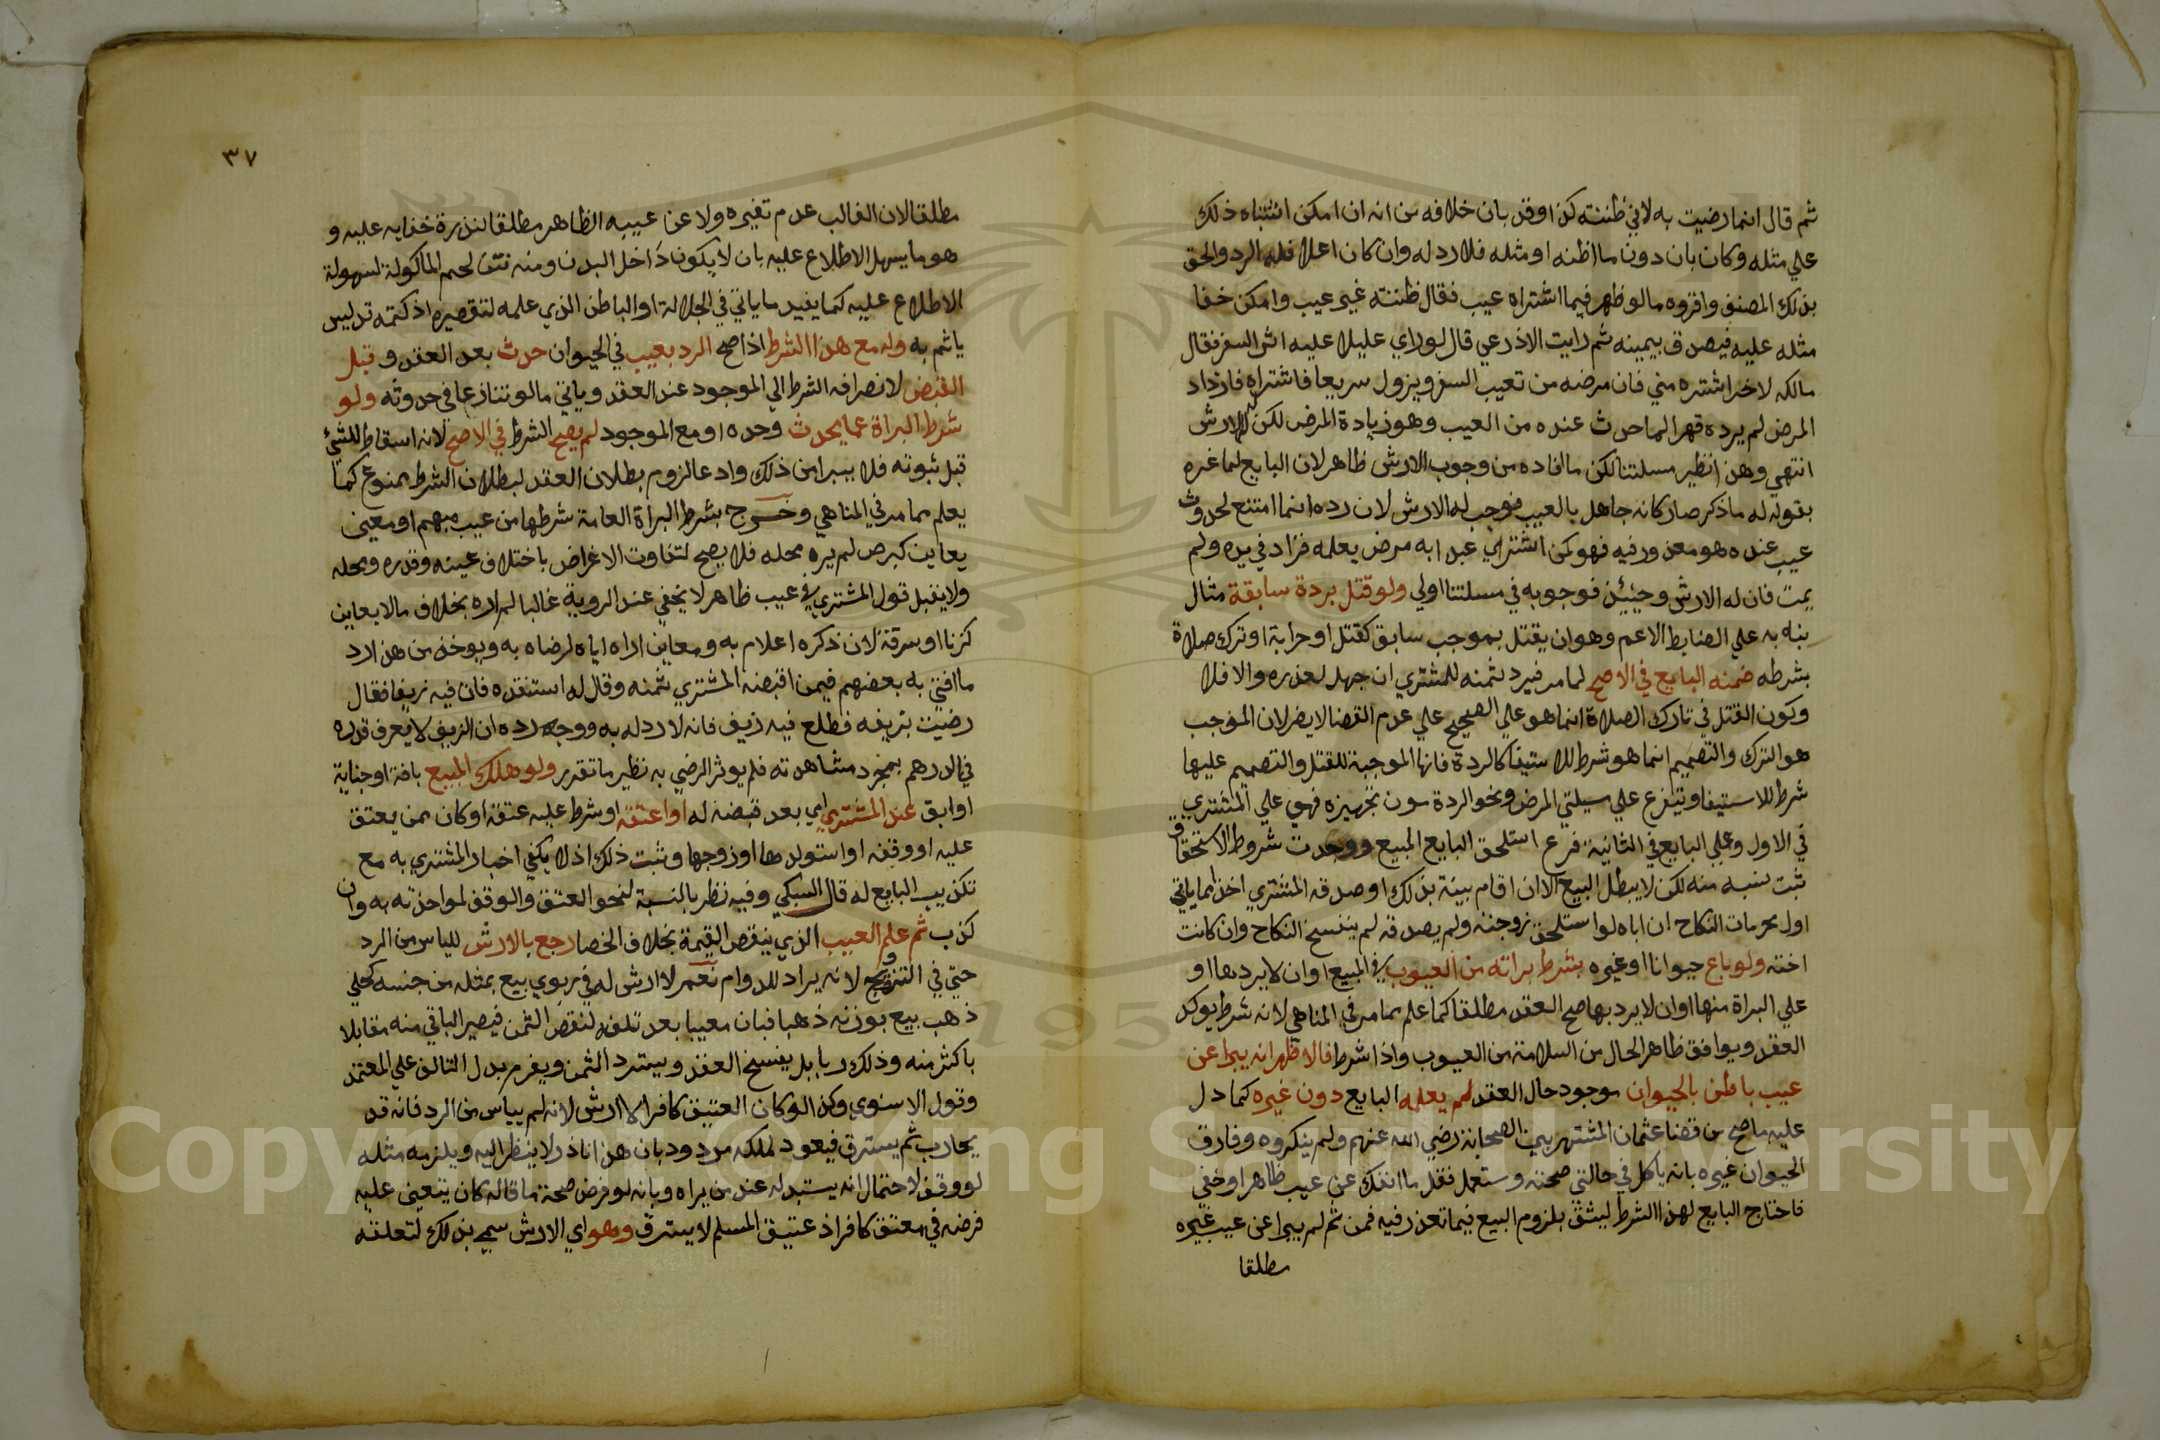 ثم قال انما رضيت به لاني ظننته كذا وقد بان خلافه من انه ان امكن اشتباه ذلك
علي مثله وكان بان دون ما اظنه او مثله فلا رد له وان كان اعلا فله الرد والحق
بذلك المصنف واقروه ما لو ظهر فيما اشتراه عيب فقال ظننته غير عيب وامكن خفا
مثله عليه فيصدق بيمينه ثم رايت الاذرعي قال لو راي عليلا عليه اثر السفر فقال
مالكه لاخر اشتره مني فان مرضه من تعب السفر ويزول سريعا فاشتراه فازداد
المرض لم يرده قهرا لما حدث عنده من العيب وهو زيادة المرض لكن له الارش
انتهي وهذا نظير مسلتنا لكن ما افاده من وجوب الارش ظاهر لان البايع لما غره
بقوله له ما ذكر صار كانه جاهل بالعيب فوجب له الارش لان رده انما امتنع لحدوث
عيب عنده هو معذور فيه فهو كمن اشتري عبدا به مرض يعلمه فزاد في يده ولم
يمت فان له الارش وحينئذ فوجوبه في مسلتنا اولي ولو قتل بردة سابقة مثال
بنه به علي الضابط الاعم وهو ان يقتل بموجب سابق كقتل او حرابة او ترك صلاة
بشرطه ضمنه البايع في الاصح لما مر فيرد ثمنه للمشتري ان جهل لعذره والا فلا
وكون القتل في تارك الصلاة انما هو علي الصحيح علي عدم القضا لا يضر لان الموجب
هو الترك والتصميم انما هو شرط للاستيفا كالردة فانها الموجبة للقتل والتصميم عليها
شرط للاستيفا ويتفرع علي مسيلتي المرض ونحو الردة مون تجهيزه فهي علي المشتري
في الاول وعلي البايع في الثانية فرع استلحق البايع المبيع ووجدت شروط الاستحقاق
ثبت نسبه منه لكن لا يبطل البيع الا ان اقام بينة بذلك او صدقه المشتري اخذا مما ياتي
اول محرمات النكاح ان اباه لو استلحق زوجته ولم يصدقه لم ينفسخ النكاح وان كانت
اخته ولو باع حيوانا او غيره بشرط براته من العيوب في المبيع او ان لا يرد بها او
علي البراة منها او ان لا يرد بها صح العقد مطلقا كما علم مما مر في المناهي لانه شرط يوكد
العقد ويوافق ظاهر الحال من السلامة من العيوب واذا شرط فالاظهر انه يبرا عن
عيب باطن بالحيوان موجود حال العقد لم يعلمه البايع دون غيره كما دل
عليه ما صح من قضا عثمان المشتهر بين الصحابة رضي الله عنهم ولم ينكروه وفارق
الحيوان غيره بانه ياكل في حالتي صحته وسقمه فقل ما انفك عن عيب ظاهر او خفي
فاحتاج البايع لهذا الشرط ليثق بلزوم البيع فيما تعذر فيه فمن ثم لم يبرا عن عيب غيره
مطلقا
٣٧
مطلقا لان الغالب عدم تغيره ولا عن عيبه الظاهر مطلقا لندرة خفايه عليه و
هو ما يسهل الاطلاع عليه بان لا يكون داخل البدن ومنه نتن لحم الماكولة لسهولة
الاطلاع عليه كما يفيد ما ياتي في الجلالة او الباطن الذي علمه لتقصيره اذ كتمه تدليس
ياثم به وله مع هذا الشرط اذا صح الرد بعيب في الحيوان حدث بعد العقد و قبل
القبض لانصرافه الشرط الي الموجود عند العقد وياتي ما لو تنازعا في حدوثه ولو
شرط البراة عما يحدث وحده او مع الموجود لم يصح الشرط في الاصح لانه اسقاط للشيء
قبل ثبوته فلا يبرا من ذلك وادعا لزوم بطلان العقد لبطلان الشرط ممنوع كما
يعلم مما مر في المناهي وخرج بشرط البراة العامة شرطها من عيب مبهم او معين
يعاين كبرص لم يره محله فلا يصح لتفاوت الاغراض باختلاف عينه وقدره ومحله
ولا يقبل قول المشتري في عيب ظاهر لا يخفي عند الروية غالبا لم اره بخلاف ما لا يعاين
كزنا او سرقة لان ذكره اعلام به ومعاين اراه اياه لرضاه به ويوخذ من هذا رد
ما افتي به بعضهم فيمن اقبضه المشتري ثمنه وقال له استنقده فان فيه زيفا فقال
رضيت بزيفه فطلع فيه زيف فانه لا رد له به ووجه رده ان الزيف لا يعرف قدره
في الدرهم بمجرد مشاهدته فلم يوثر الرضي به نظير ما تقرر ولو هلك المبيع بافة او جناية
او ابق عند المشتري اي بعد قبضه له او اعتقه او شرط عليه عتقه او كان ممن يعتق
عليه او وقفه او استولدها او زوجها وثبت ذلك اذ لا يكفي اخبار المشتري به مع
تكذيب البايع له قال السبكي وفيه نظر بالنسبة لنحو العتق والوقف لمواخذته به وان
كذب ثم علم العيب الذي ينقص القيمة بخلاف الخصا رجع بالارش للياس من الرد
حتي في التزويج لانه يراد للدوام نعم لا ارش له في ربوي بيع بمثله من جنسه كحلي
ذهب بيع بوزنه ذهبا فبان معيبا بعد تلفه لنقص الثمن فيصير الباقي منه مقابلا
باكثر منه وذلك ربا بل يفسخ العقد ويسترد الثمن ويغرم بدل التالف علي المعتمد
وقول الاسنوي وكذا لو كان العتيق كافرا لا ارش لانه لم يياس من الرد فانه قد
يحارب ثم يسترق فيعود لملكه مردود بان هذا نادر لا ينظر اليه ويلزمه مثله
لو وقف لاحتمال انه يستبدله عند من يراه وبانه لو فرض صحة ما قاله كان يتعين عليه
فرضه في معتق كافر اذ عتيق المسلم لا يسترق وهو اي الارش سمي بذلك لتعلقه